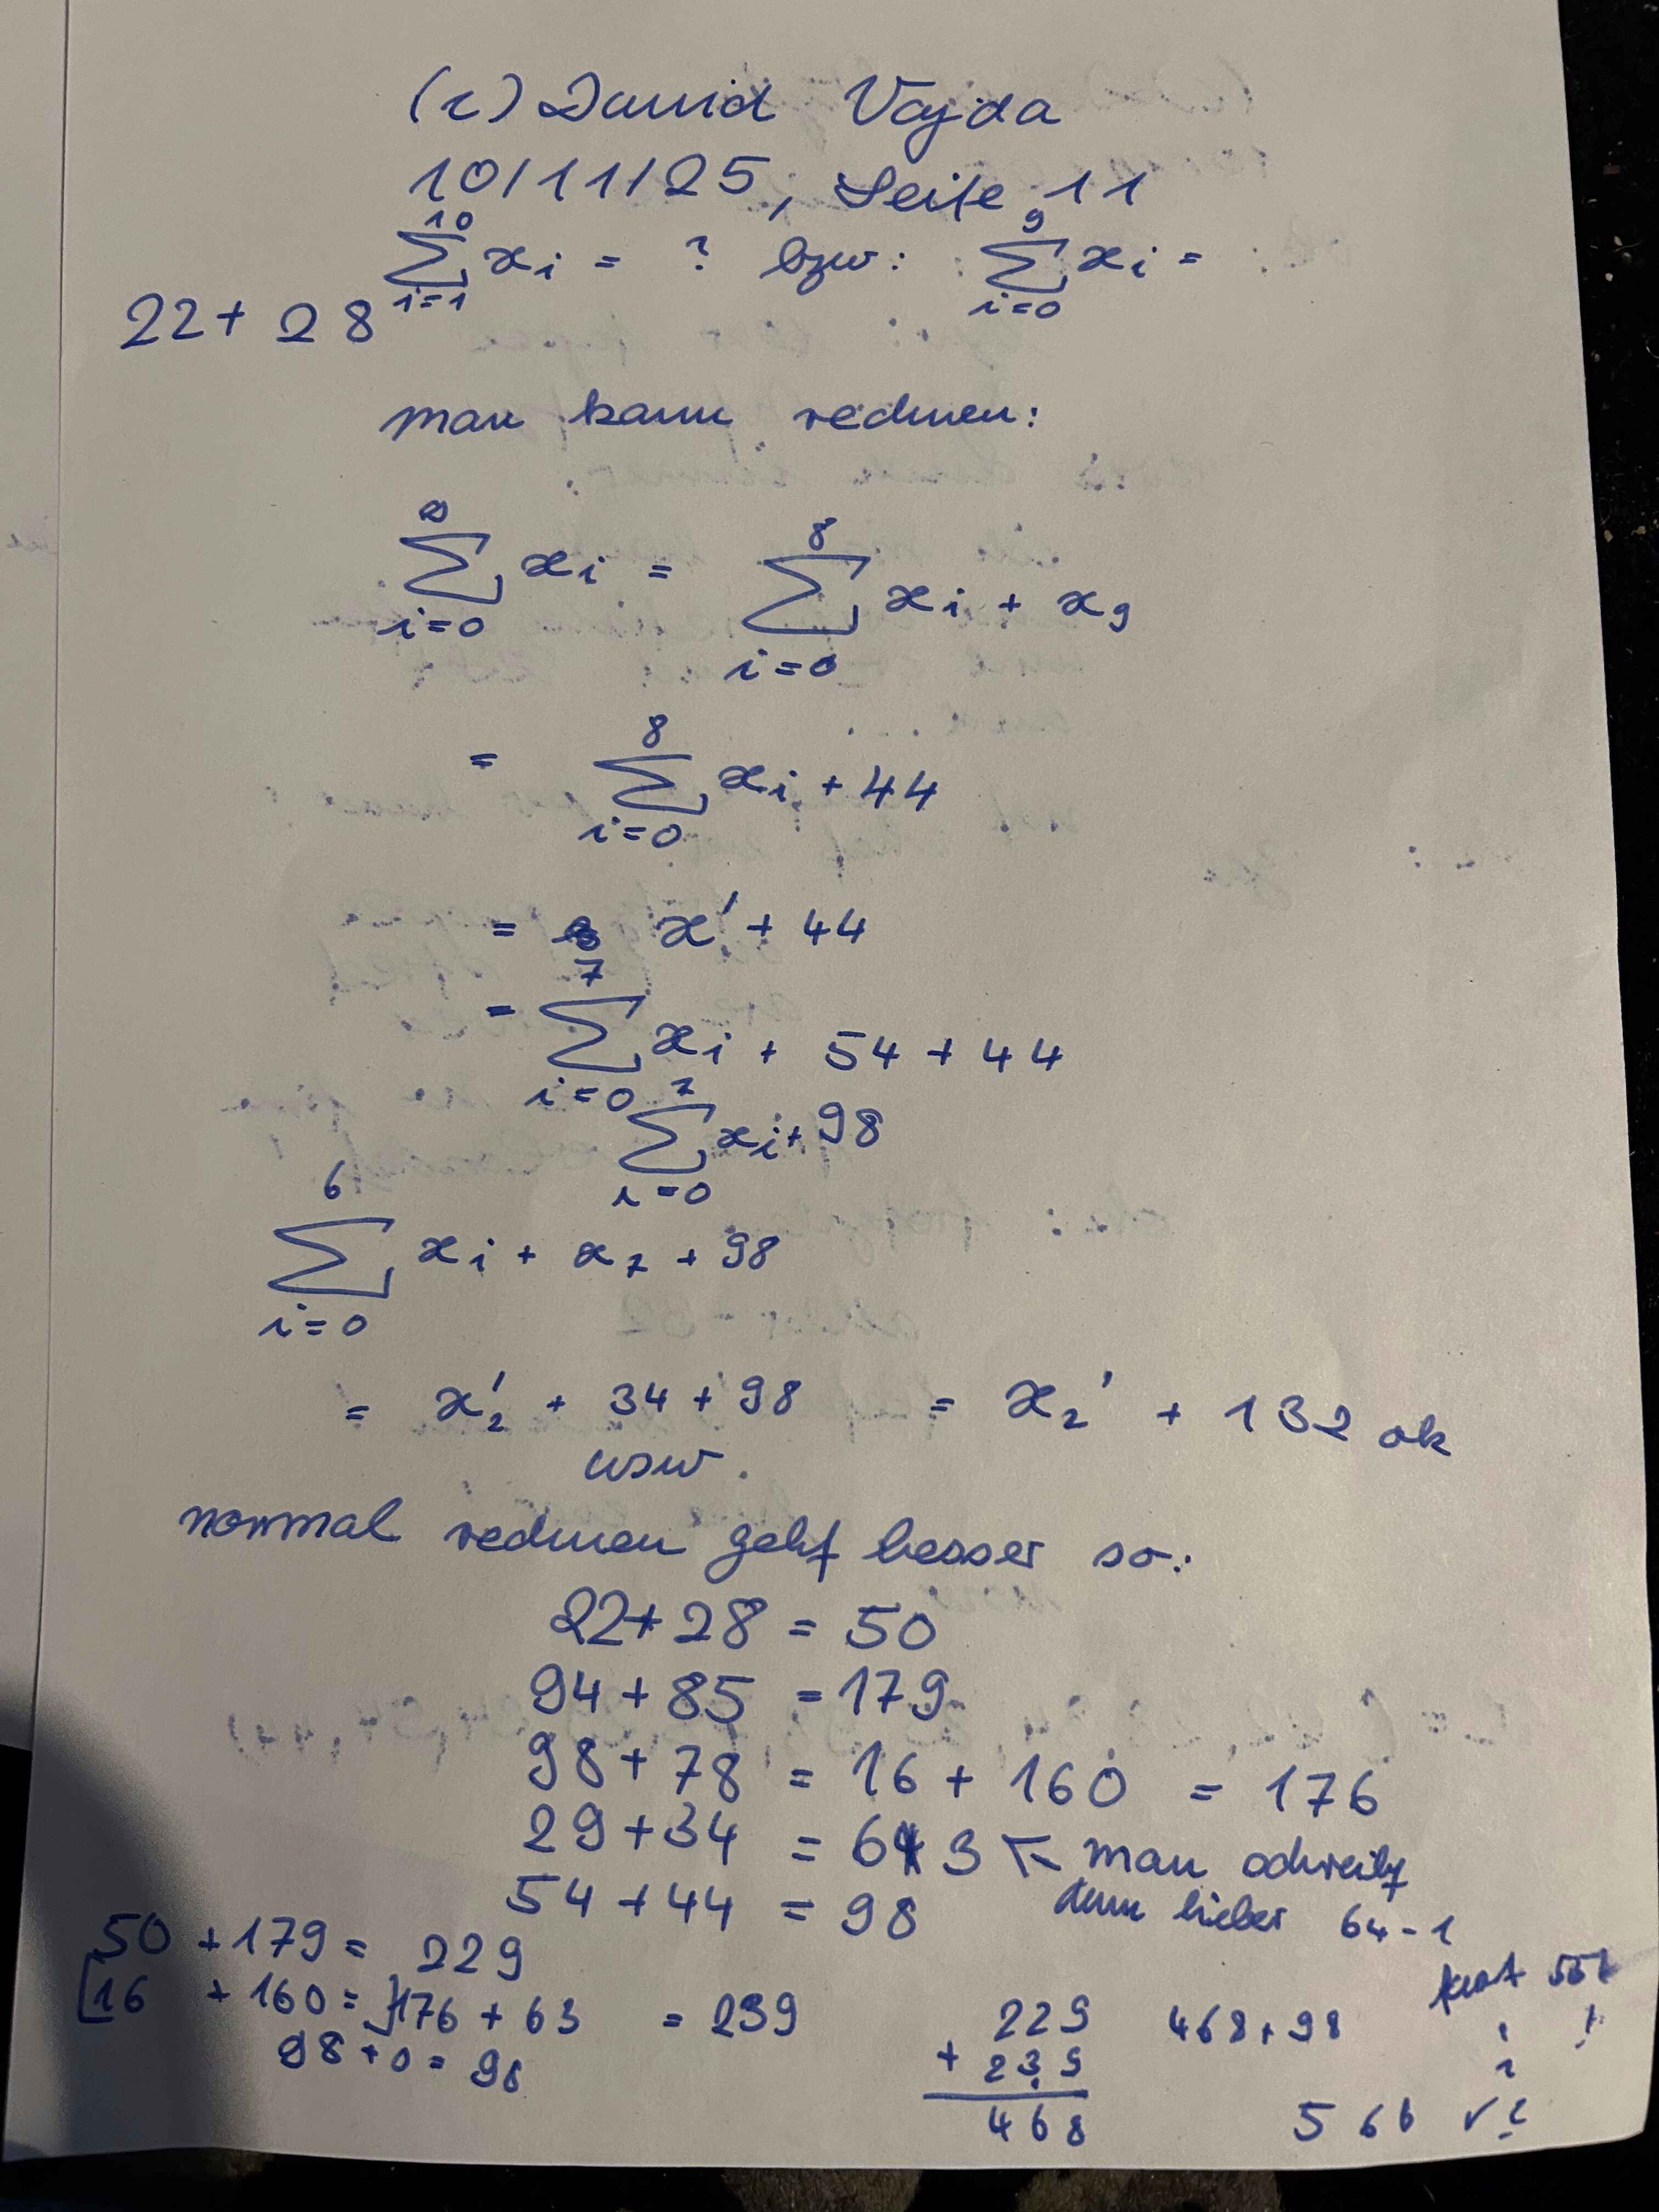 (c) David Vajda
10/11/25, Seite 11
10 ∑ i=1 xi = ? bzw: 9 ∑ i=0 xi =
22 + 28
man kann rechnen:
∑ i=0 xi = 8 ∑ i=0 xi + x9
= 8 ∑ i=0 xi + 44
= x' + 44
= 7 ∑ i=0 xi + 54 + 44
7 ∑ i=0 xi + 98
6 ∑ i=0 xi + x7 + 98
= x2' + 34 + 98 = x2' + 132 ok
usw.
normal rechnen geht besser so:
22 + 28 = 50
94 + 85 = 179
98 + 78 = 16 + 160 = 176
29 + 34 = 63 ← man schreibt
dann lieber 64 - 1
54 + 44 = 98
50 + 179 = 229
[16 + 160 = ] 176 + 63 = 239
98 + 0 = 98
229
+ 239
468
468 + 98
566 ✓